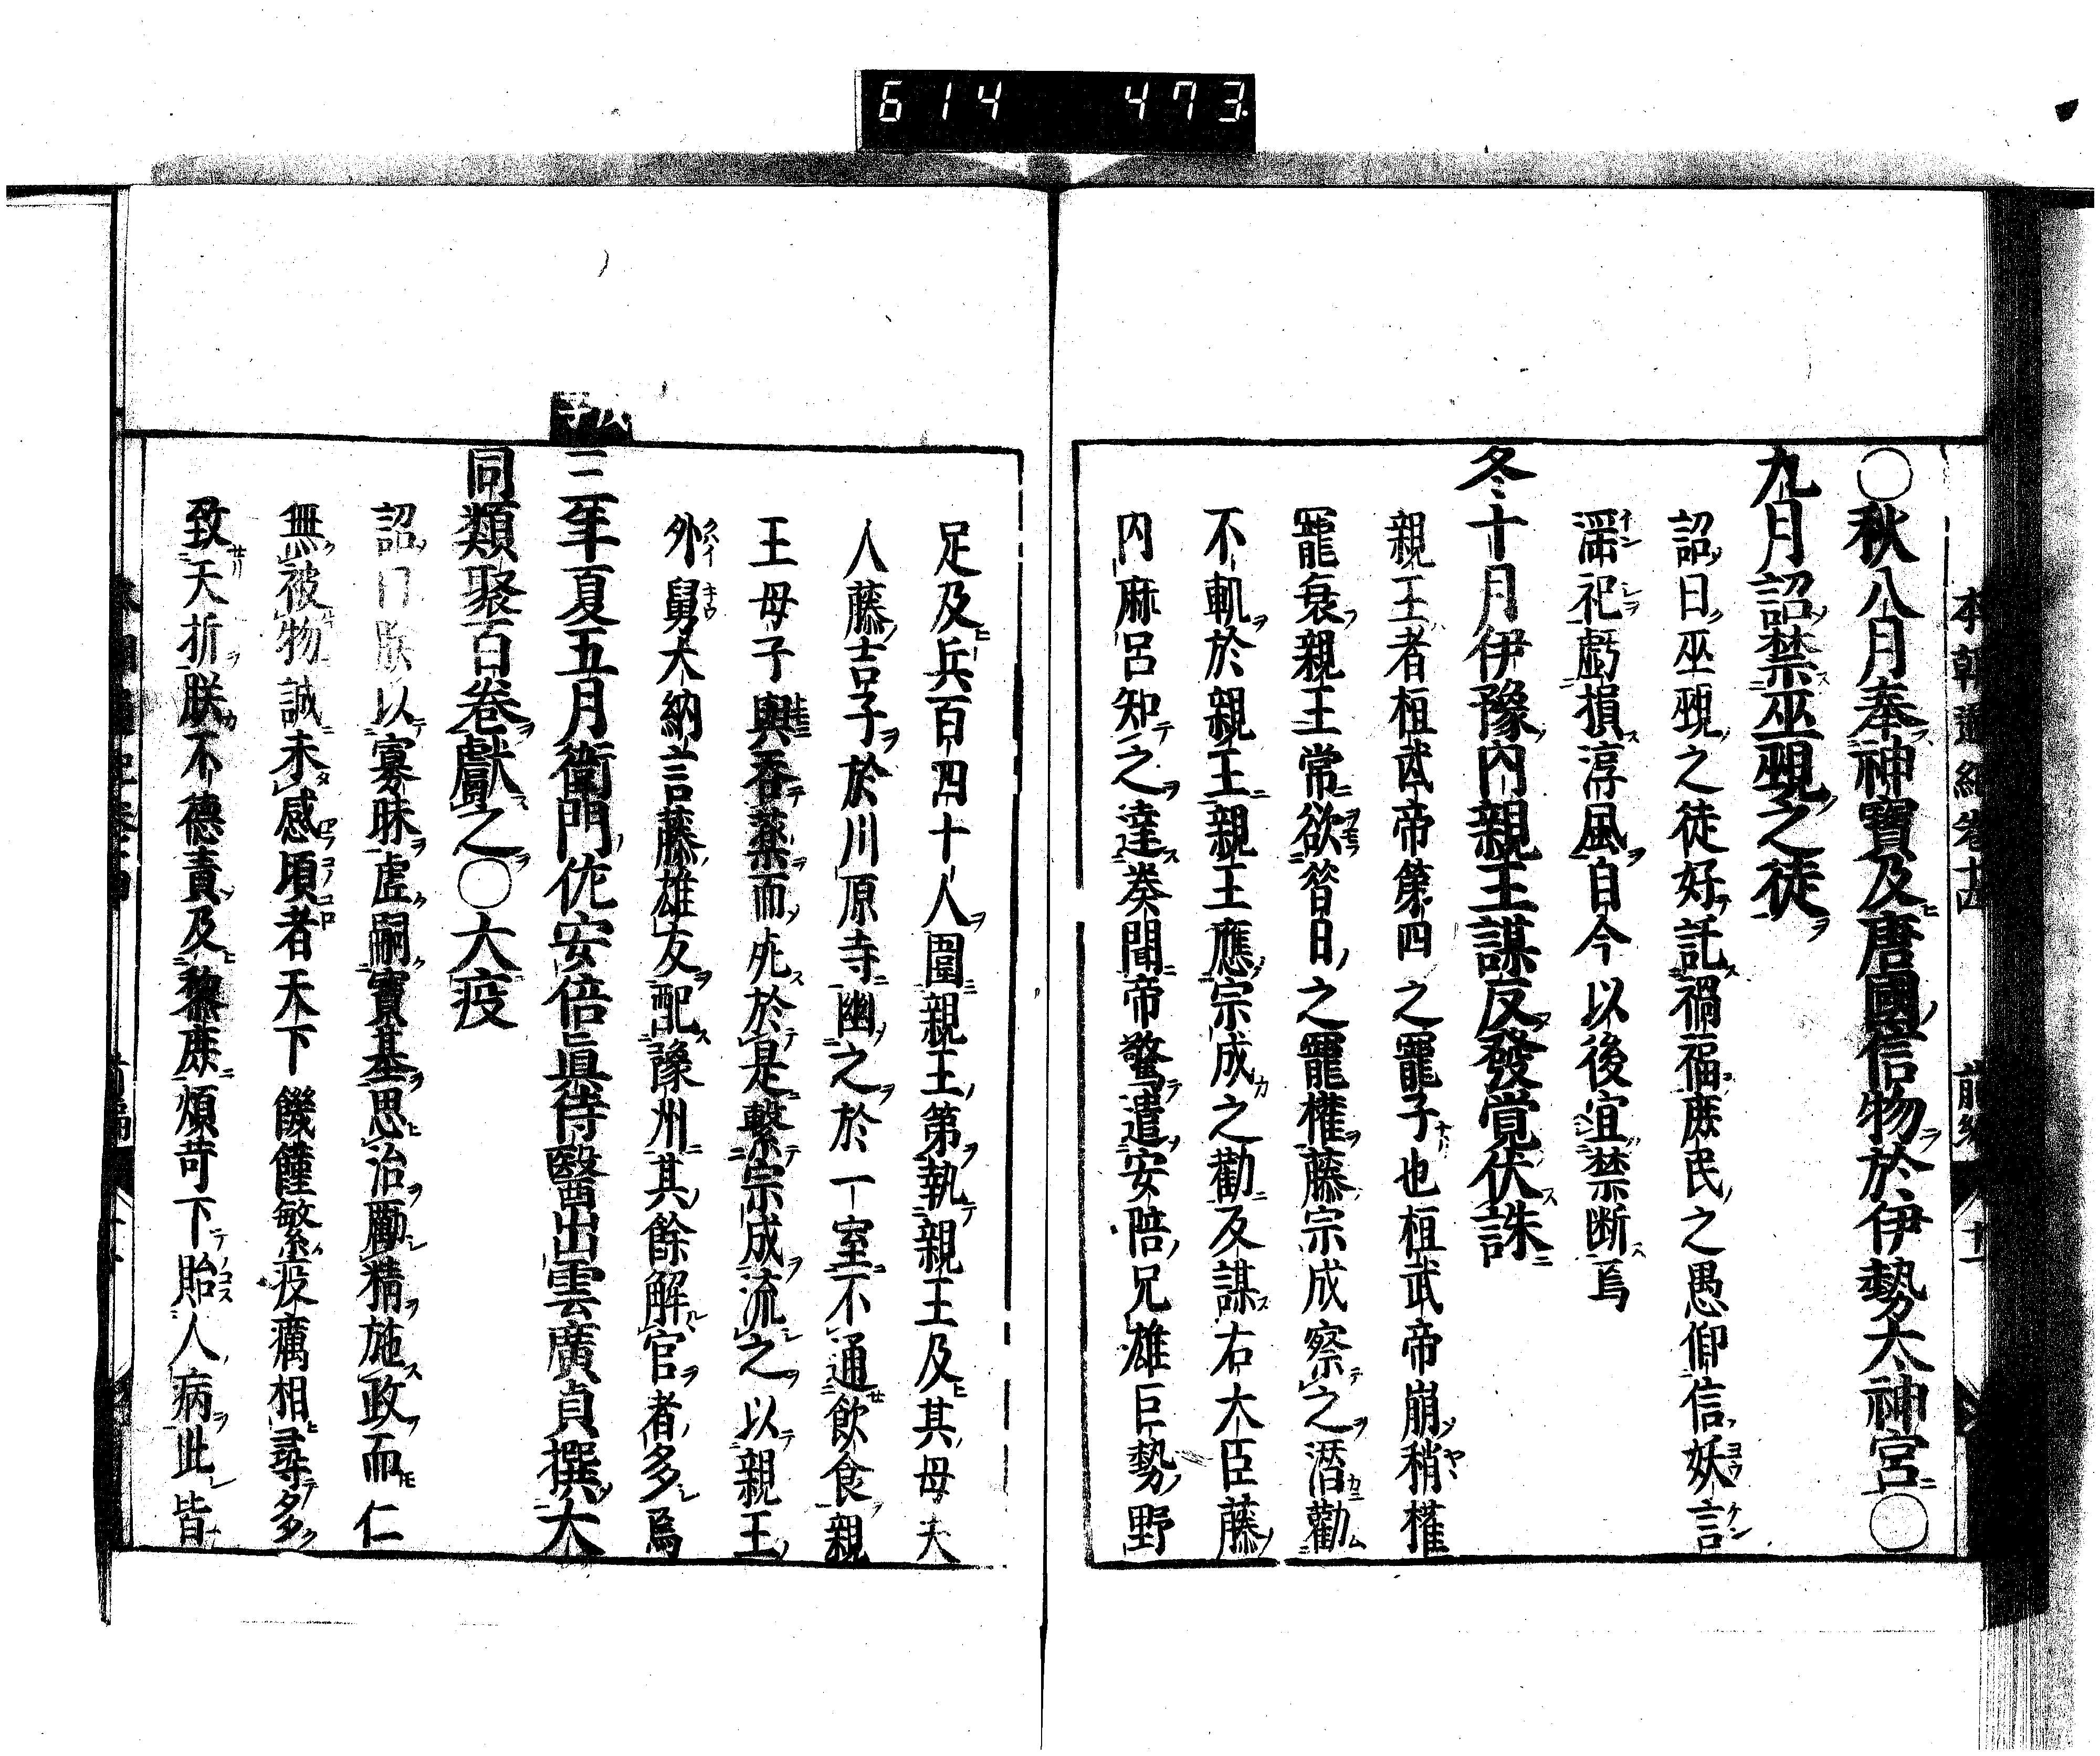 614 473
本朝通紀卷十四 前編 十一
○秋八月奉神寶及唐國信物於伊勢大神宮○
九月詔禁巫覡之徒
詔曰巫覡之徒好託禍福庶民之愚仰信妖言
淫祀虧損淳風自今以後宜禁断焉
冬十月伊豫内親王謀反發覚伏誅
親王者桓武帝第四之寵子也桓武帝崩稍権
寵衰親王常欲昝日之寵権藤宗成察之潛勸
不軌於親王親王應宗成之勸及謀右大臣藤
内麻呂知之達奏聞帝驚遣安陪兄雄巨勢野
足及兵百四十人圍親王第執親王及其母夫
人藤吉子於川原寺幽之於一室不通飲食親
王母子與吞薬而死於是繫宗成流之以親王
外舅大納言藤雄友配豫州其餘解官者多焉
三年夏五月衛門佐安倍眞侍醫出雲廣貞撰大
同類聚百卷獻之○大疫
詔曰朕以寡昧虚嗣寶基思治勵精施政而仁
無被物誠未感頃者天下饑饉繁疫癘相尋多
致夭折朕不德責及黎庶煩苛下貽人病此皆